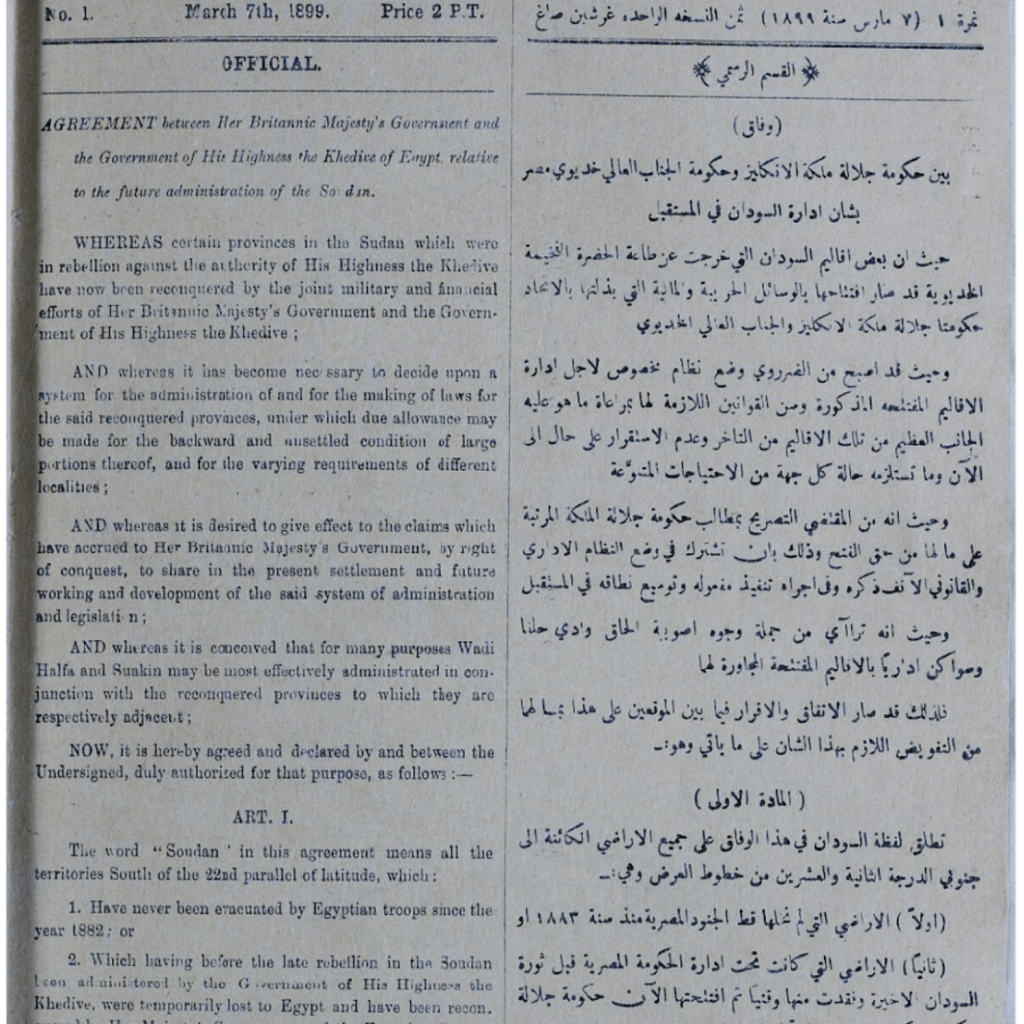 No. 1. March 7th, 1899. Price 2 P.T.
OFFICIAL.
AGREEMENT between Her Britannic Majesty's Government and
the Government of His Highness the Khedive of Egypt, relative
to the future administration of the So dan.
WHEREAS certain provinces in the Sudan which were
in rebellion against the authority of His Highness the Khedive
have now been reconquered by the joint military and financial
efforts of Her Britannic Majesty's Government and the Govern-
ment of His Highness the Khedive ;
AND whereas it has become necessary to decide upon a
system for the administration of and for the making of laws for
the said reconquered provinces, under which due allowance may
be made for the backward and unsettled condition of large
portions thereof, and for the varying requirements of different
localities ;
AND whereas it is desired to give effect to the claims which
have accrued to Her Britannic Majesty's Government, by right
of conquest, to share in the present settlement and future
working and development of the said system of administration
and legislation ;
AND whereas it is conceived that for many purposes Wadi
Halfa and Suakin may be most effectively administered in con-
junction with the reconquered provinces to which they are
respectively adjacent ;
NOW, it is hereby agreed and declared by and between the
Undersigned, duly authorized for that purpose, as follows :—
ART. I.
The word "Soudan" in this agreement means all the
territories South of the 22nd parallel of latitude, which :
1. Have never been evacuated by Egyptian troops since the
year 1882; or
2. Which having before the late rebellion in the Soudan
been administered by the Government of His Highness the
Khedive, were temporarily lost to Egypt and have been recon-
نمرة ١ (٧ مارس سنة ١٨٩٩) ثمن النسخه الراحده غرشين صاغ
القسم الرسمي
(وفاق)
بين حكومة جلالة ملكة الانكليز وحكومة الجناب العالي خديوي مصر
بشان ادارة السودان في المستقبل
حيث ان بعض اقاليم السودان التي خرجت عن طاعة الحضرة الفخيمة
الخديوية قد صار افتتاحها بالوسائل الحربية والمالية التي بذلتها بالاتحاد
حكومتا جلالة ملكة الانكليز والجناب العالي الخديوي
وحيث قد اصبح من الضروري وضع نظام مخصوص لاجل ادارة
الاقاليم المفتتحه المذكورة وسن القوانين اللازمة لها بمراعاة ما هو عليه
الجانب العظيم من تلك الاقاليم من التاخر وعدم الاستقرار على حال الى
الآن وما تستلزمه حالة كل جهة من الاحتياجات المتنوّعة
وحيث انه من المقتضي التصريح بمطالب حكومة جلالة الملكة المرتبة
على ما لها من حق الفتح وذلك بان تشترك في وضع النظام الاداري
والقانوني الآنف ذكره وفي اجراء تنفيذ مفعوله وتوسيع نطاقه في المستقبل
وحيث انه تراآي من جملة وجوه اصوبية الحاق وادي حلفا
وصواكن اداريًا بالاقاليم المفتتحة المجاورة لهما
فلذلك قد صار الاتفاق والاقرار فيما بين الموقعين على هذا بما لهما
من التفويض اللازم بهذا الشان على ما ياتي وهو:ـ
(المادة الاولى)
تطلق لفظة السودان في هذا الوفاق على جميع الاراضي الكائنة الى
جنوبي الدرجة الثانية والعشرين من خطوط العرض وهي:ـ
(اولاً) الاراضي التي لم تخلها قط الجنود المصرية منذ سنة ١٨٨٣ او
(ثانياً) الاراضي التي كانت تحت ادارة الحكومة المصرية قبل ثورة
السودان الاخيرة وفقدت منها وقتياً ثم افتتحتها الآن حكومة جلالة